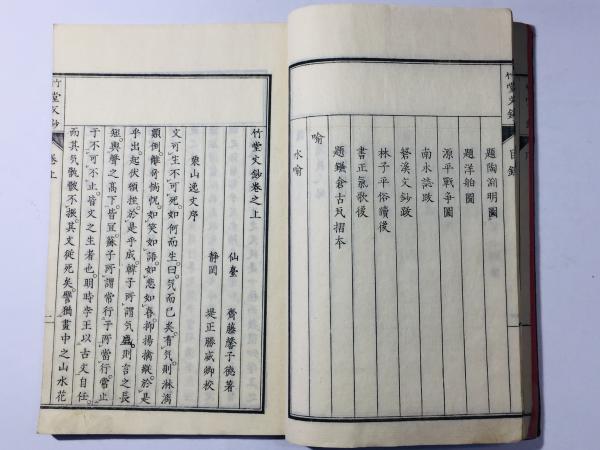 竹堂文鈔
目錄
題陶淵明圖
題洋舶圖
源平戰爭圖
南水誌跋
磐溪文鈔跋
林子平俗牘後
書正氣歌後
題鎌倉古瓦搨本
喻
水喻
竹堂文鈔卷之上
仙臺 齋藤馨子德著
靜岡 堤正勝威卿校
栗山逸文序
文可生不可死如何而生曰氣而已矣有氣則淋漓
顛倒離奇惝怳如笑如語如怒如喜抑揚擒縱於是
乎出起伏頓挫於是乎成韓子所謂氣盛則言之長
短與聲之高下皆宜蘇子所謂常行于所當行常止
于不可不止皆文之生者也明時李王以古文自任
而其氣骫骳不振其文從死矣譬猶畫中之山水花
竹堂文鈔
卷上
一